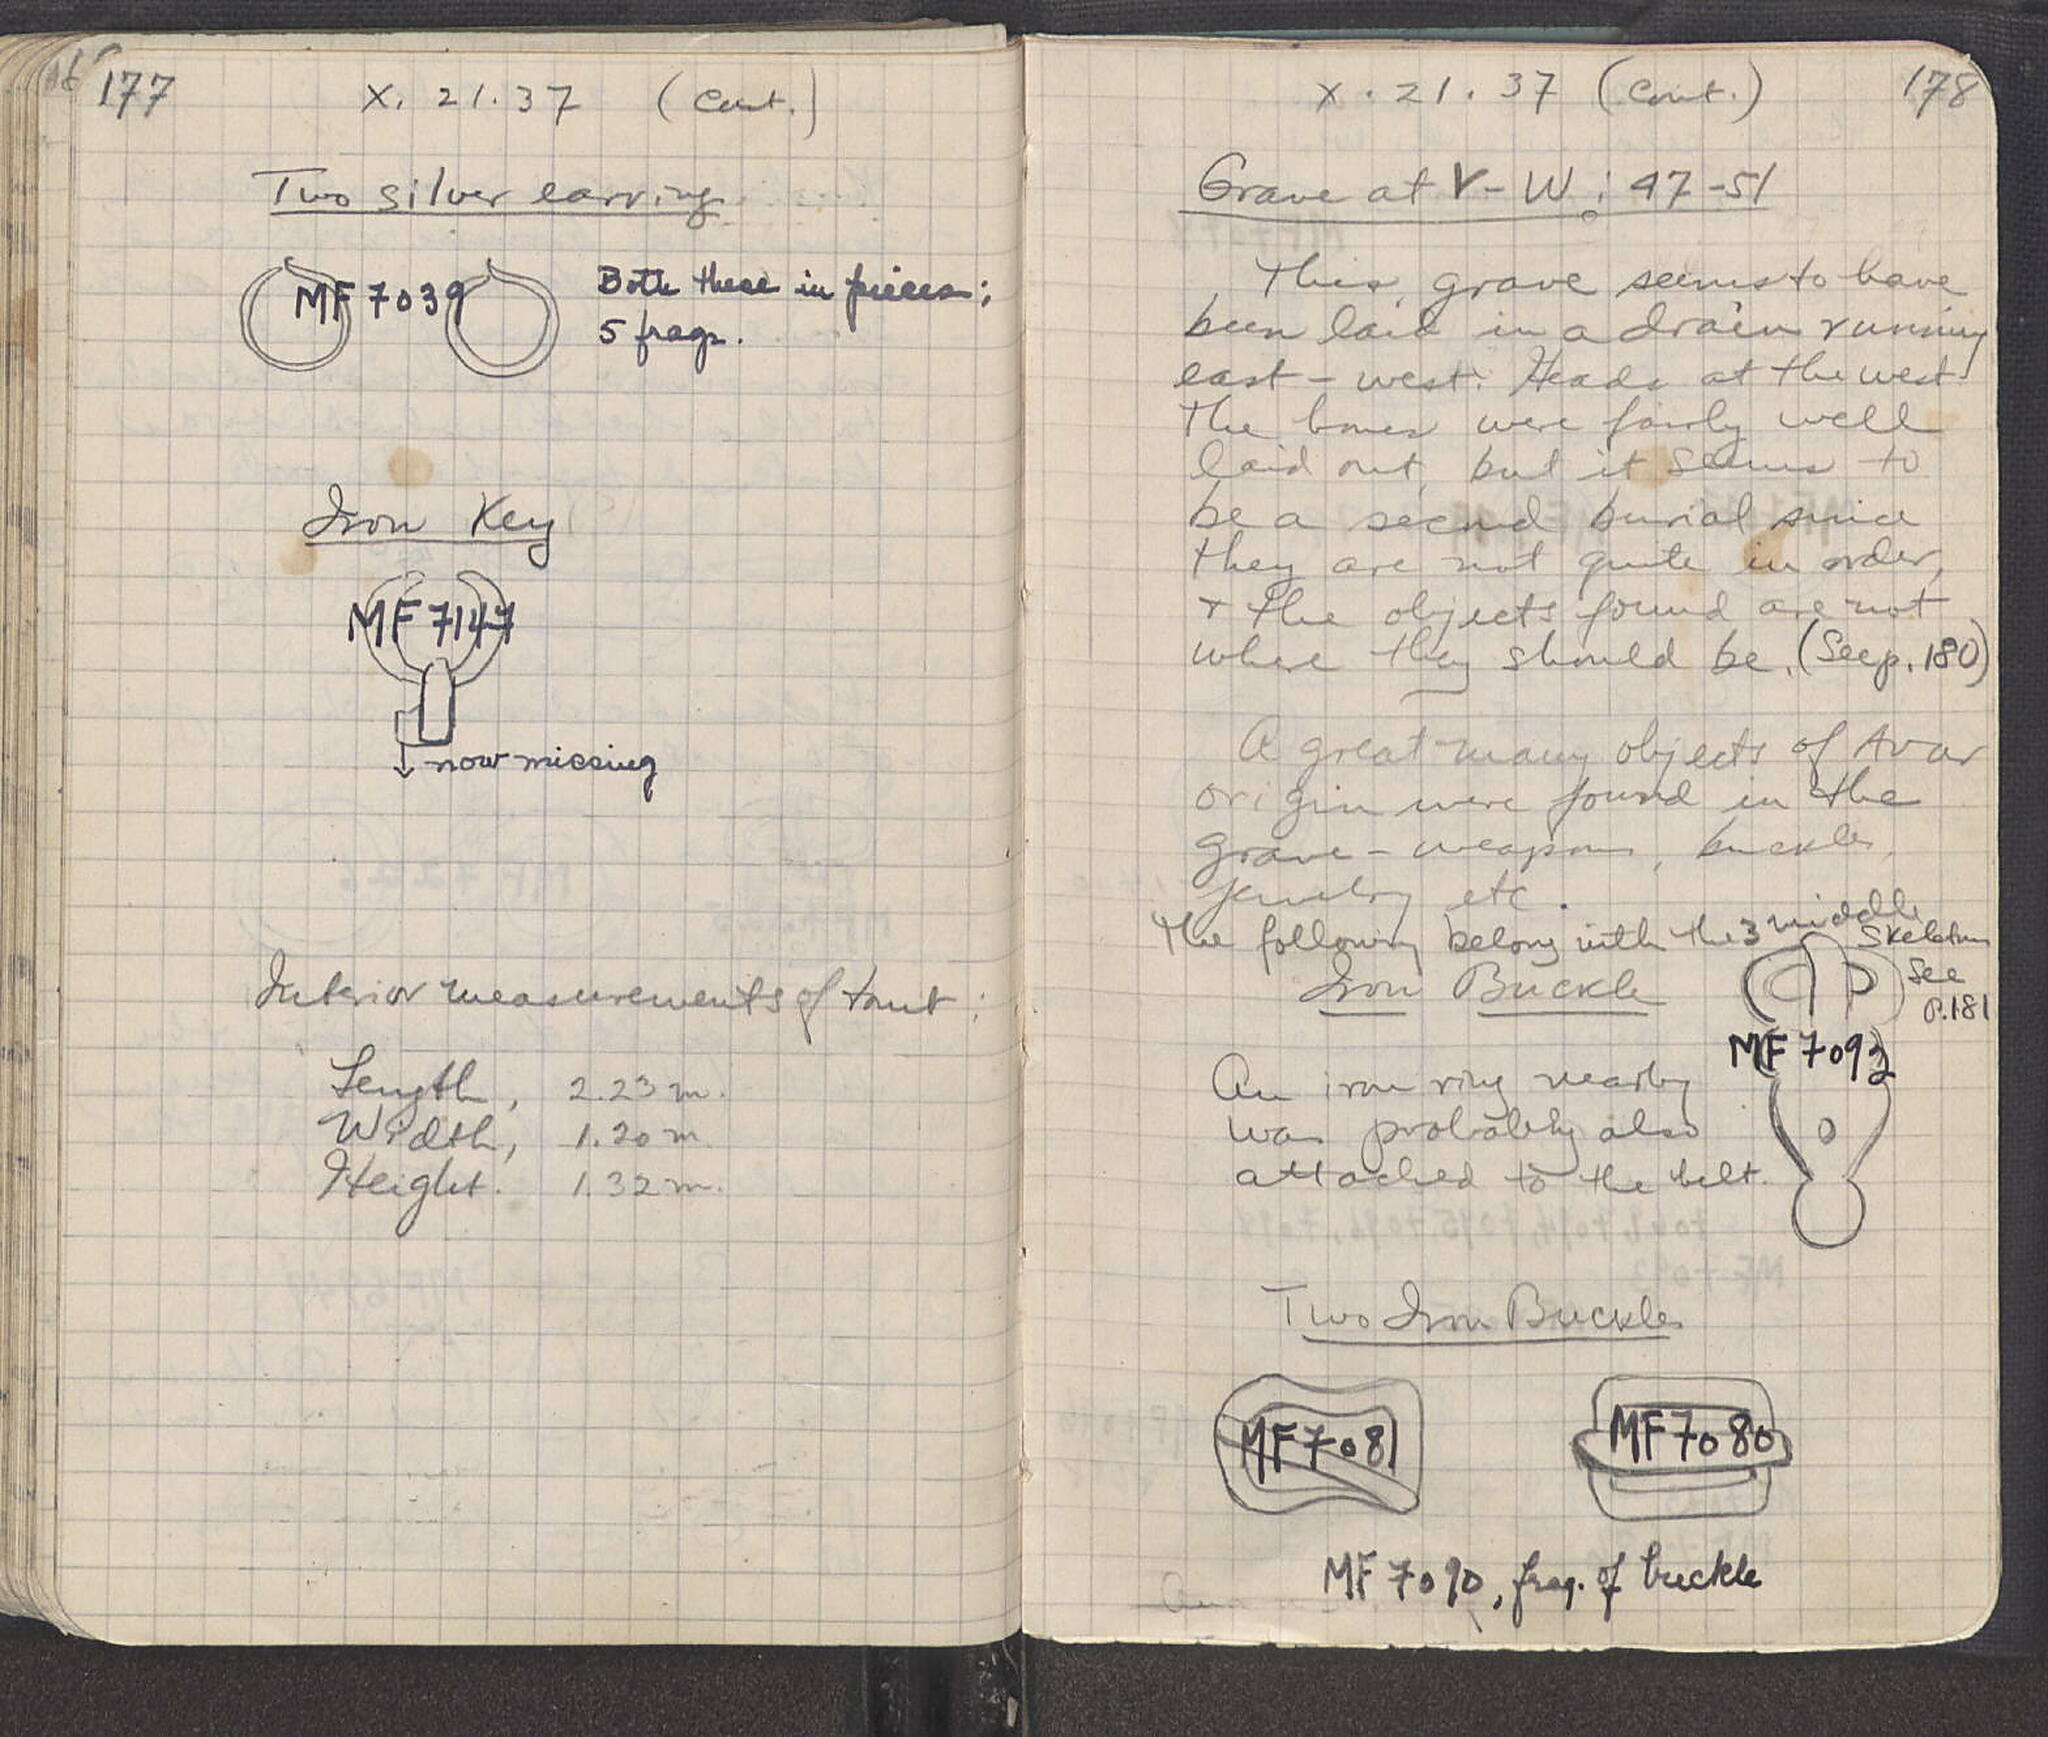 177
X. 21. 37 (cont.)
Two silver earring
MF 7039
Both these in pieces;
5 frags.
Iron Key
MF 7147
now missing
Interior measurements of :
Length, 2.23 m.
Width, 1.20 m
Height. 1.32 m.
X. 21. 37 (cont.)
178
Grave at V-W: 47-51
This grave seems to have
been laid in a drain running
east-west. Heads at the west
The bones were fairly well
laid out, but it seems to
be a second burial since
they are not quite in order,
+ the objects found are not
where they should be. (See p. 180)
A great many objects of Avar
origin were found in the
grave - weapons, buckles,
jewelry etc.
The following belong with the 3 middle
skeletons
See
p. 181
Iron Buckle
MF 7092
An iron ring nearby
was probably also
attached to the belt.
Two Iron Buckles
MF 7081
MF 7080
MF 7090, frag. of buckle